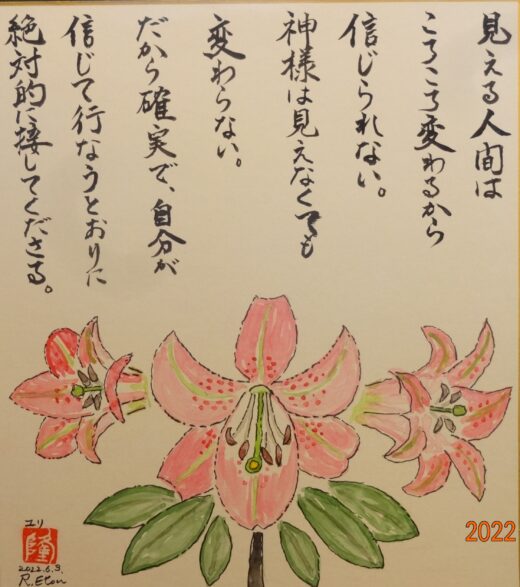 見える人間は
ころころ変わるから
信じられない。
神様は見えなくても
変わらない。
だから確実で、自分が
信じて行なうとおりに
絶対的に接してくださる。
ユリ
隆
2022.6.3.
R.Eton
2022